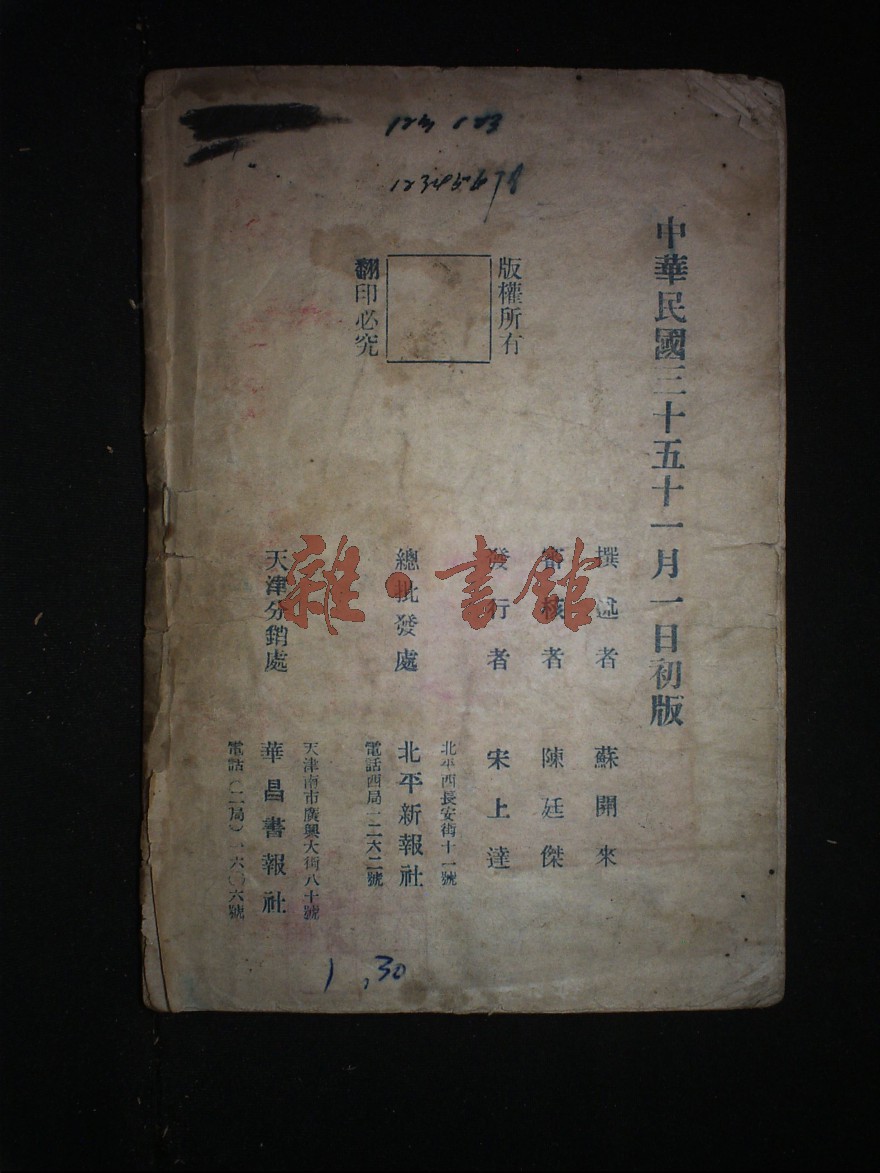 中華民國三十五十一月一日初版
撰述者 蘇開來
審核者 陳廷傑
發行者 宋上達
版權所有
翻印必究
總批發處 北平新報社
北平西長安街十一號
電話西局一二六二號
天津分銷處 華昌書報社
天津南市廣興大街八十號
電話（二局）一六〇六號
123 123
12345678
1.30
雜·書館